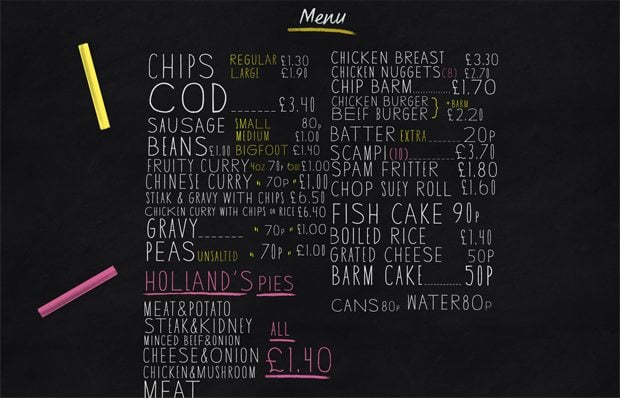 Menu
CHIPS REGULAR £1.30
LARGE £1.90
COD £3.40
SAUSAGE SMALL 80P
MEDIUM £1.00
BEANS £1.00 BIGFOOT £1.40
FRUITY CURRY 4OZ 70P 6OZ £1.00
CHINESE CURRY " 70P " £1.00
STEAK & GRAVY WITH CHIPS £6.50
CHICKEN CURRY WITH CHIPS OR RICE £6.40
GRAVY....... " 70P " £1.00
PEAS UNSALTED " 70P " £1.00
HOLLAND'S PIES
MEAT&POTATO
STEAK&KIDNEY
MINCED BEEF&ONION
CHEESE&ONION
CHICKEN&MUSHROOM
MEAT
ALL
£1.40
CHICKEN BREAST £3.30
CHICKEN NUGGETS (8) £2.70
CHIP BARM............£1.70
CHICKEN BURGER } + BARM
BEEF BURGER £2.20
BATTER EXTRA 20P
SCAMPI (10) £3.70
SPAM FRITTER £1.80
CHOP SUEY ROLL £1.60
FISH CAKE 90P
BOILED RICE £1.40
GRATED CHEESE 50P
BARM CAKE.......... 50P
CANS 80P WATER 80P